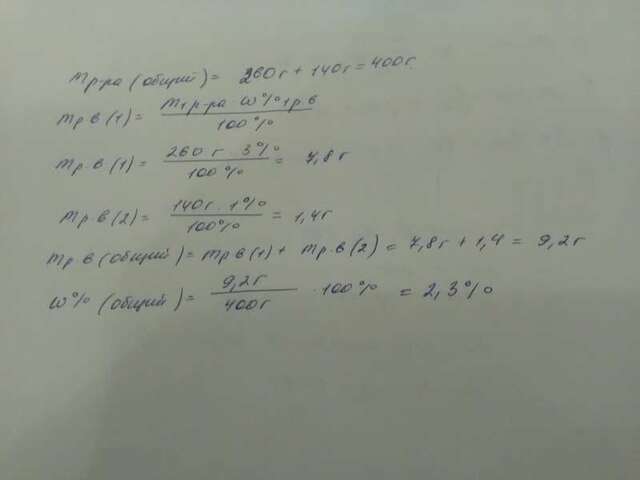 mр-ра (общий) = 260г + 140г = 400г.
mр.в (1) = m1р-ра · w%1р.в / 100%
mр.в (1) = 260 г · 3% / 100% = 7,8 г
mр.в (2) = 140г · 1% / 100% = 1,4г
mр.в (общий) = mр.в (1) + mр.в (2) = 7,8г + 1,4 = 9,2г
w% (общий) = 9,2г / 400г · 100% = 2,3%